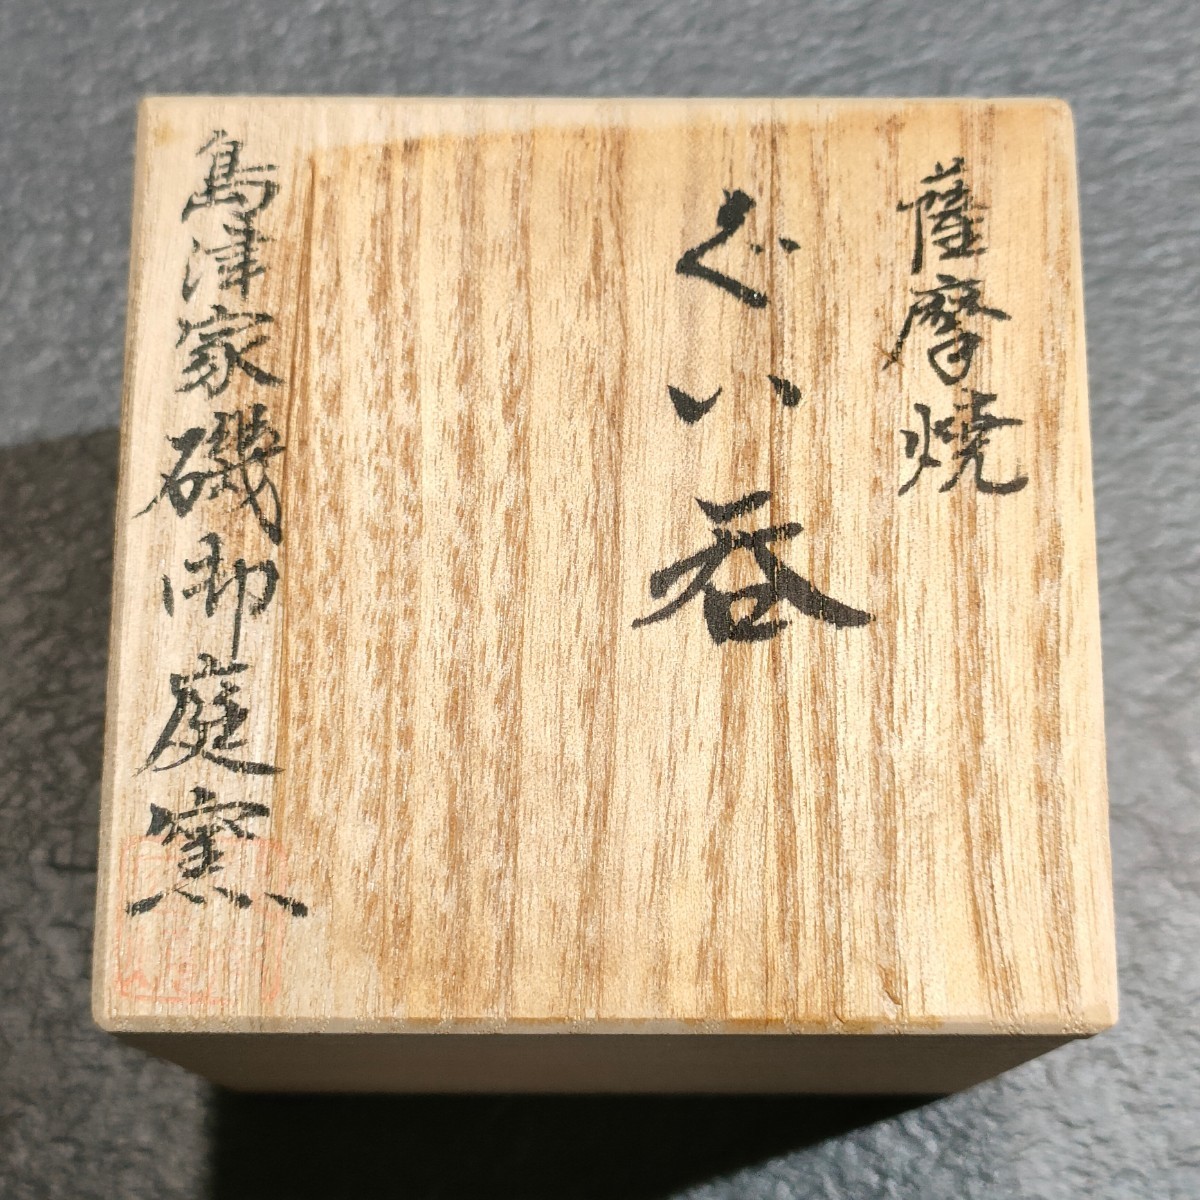 薩摩焼
ぐい呑
島津家磯御庭窯